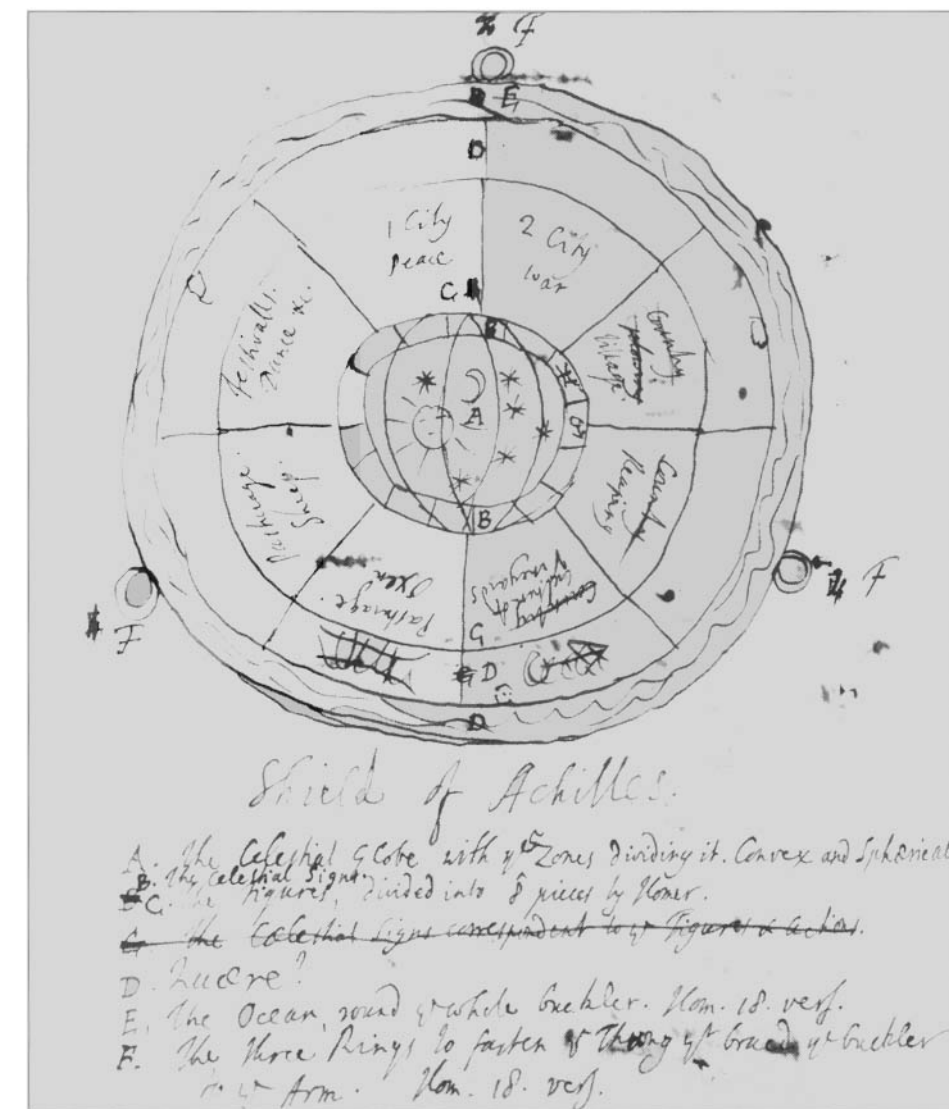 F
E
D
1 City
peace
2 City
war
C
B
Festivalls.
Dance &c.
Country.
Village.
A
D
D
Pasturage.
Sheep.
Country
Reaping
B
Pasturage.
Oxen
Country
vineyards
F
F
D
D
Shield of Achilles.
A. The Celestial Globe with ye 5 Zones dividing it. Convex and Sphærical
B. The Celestial Signs.
C. The figures, divided into 8 pieces by Homer.
G The Cælestial Signs correspondent to ye Figures & Actions.
D. Quære?
E. The Ocean, round ye whole buckler. Hom. 18. vers.
F. The three Rings to fasten ye Thong yt brac'd ye buckler
to ye Arm. Hom. 18. vers.